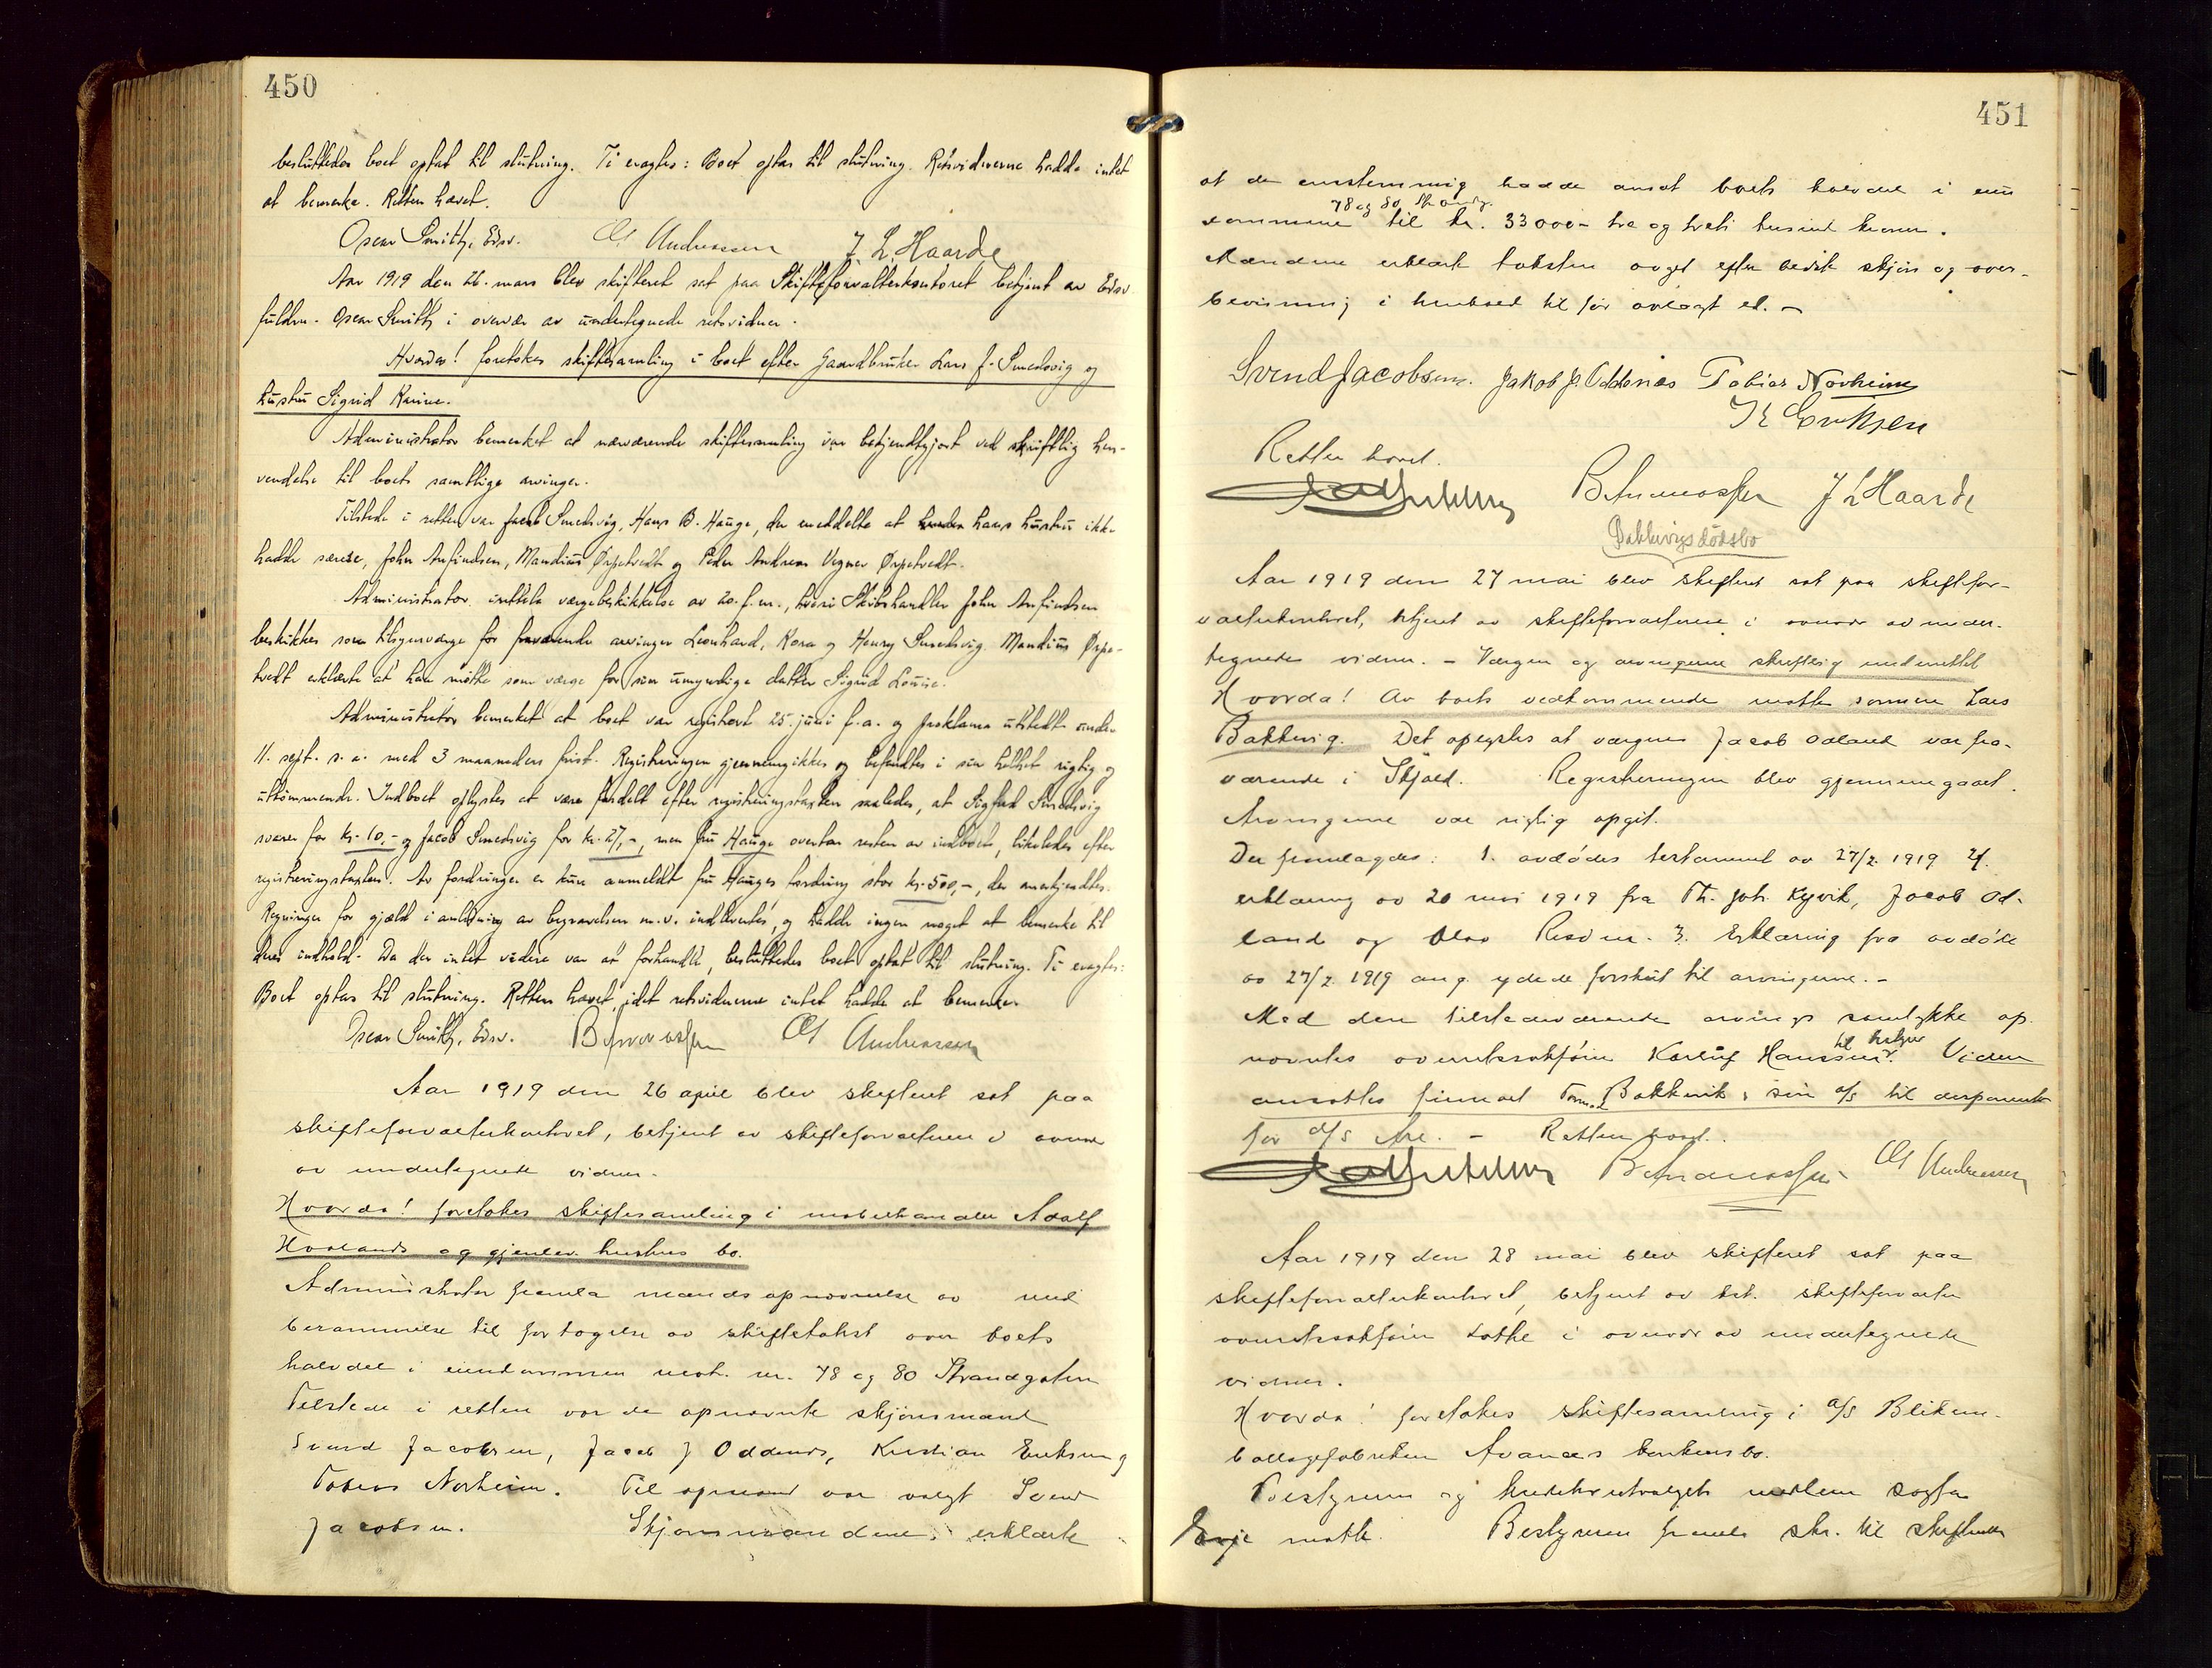 450
besluttedes boet optat til slutning. Ti eragtes: Boet optas til slutning. Retsvidnerne hadde intet
at bemerke. Retten hævet.
Oscar Smith, Edsv. Chr Andreassen J. L. Haarde
Aar 1919 den 26. mars blev skifteret sat paa Skifteforvalterkontoret betjent av Edsv.
fuldm. Oscar Smith i overvær av undertegnede retsvidner.
Hvorda! foretokes skiftesamling i boet efter Gaardbruker Lars J. Smedsvig og
hustru Sigrid Karine.
Administrator bemerket at nærværende skiftesamling var bekjendtgjort ved skriftlig hen-
vendelse til boets samtlige arvinger.
Tilstede i retten var Jacob Smedsvig, Hans B. Hauge, der meddelte at hans hustru ikke
hadde særeie, John Anfindsen, Mandius Ørpetvedt og Peder Andreas Vegner Ørpetvedt.
Administrator indtok vergebeskikkelse av 20. f.m., hvori Skibshandler John Anfindsen
beskikkes som tilsynsverge for fraværende arvinger Leonhard, Kora og Henry Smedsvig. Mandius Ørpe-
tvedt erklærte at han møtte som verge for sin umyndige datter Sigrid Louise.
Administrator bemerket at boet var registrert 25. juni f.a. og proklama utstedt under
11. sept. s.a. med 3 maaneders frist. Registreringen gjennemgikkes og befandtes i sin helhet rigtig og
uttømmende. Indboet oplystes at være fordelt efter registreringstaksten saaledes, at Sigfred Smedsvig
svarer for kr. 10,- og Jacob Smedsvig for kr. 27,-, men fru Hauge overtar resten av indboet, likeledes efter
registreringstaksten. Av fordringer er kun anmeldt fru Hauges fordring stor kr. 500,-, der anerkjendtes.
Regninger for gjæld i anledning av begravelsen m.v. indleverтes, og hadde ingen noget at bemerke til
deres indhold. Da der intet videre var at forhandle, besluttedes boet optat til slutning. Ti eragtes:
Boet optas til slutning. Retten hævet, idet retsvidnerne intet hadde at bemerke.
Oscar Smith, Edsv. B Amanassen Chr Andreassen
Aar 1919 den 26 april blev skifteret sat paa
skifteforvalterkontoret, betjent av skifteforvalteren i overvær
av undertegnede vidner.
Hvorda! foretokes skiftesamling i møbelhandler Adolf
Hvalands og gjenlev. hustrus bo.
Administrator fremla mandsopnævnelse av med
berammelse til fortagelse av skiftetakst over boets
halvdel i eiendommen mat. nr. 78 og 80 Strandgaten
Tilstede i retten var de opnævnte skjønsmænd
Svend Jacobsen, Jacob J Oddenes, Kristian Eriksen og
Tobias Norheim. Til opmand var valgt Svend
Jacobsen. Skjønsmændene erklærte
451
at de enstemmig hadde ansat boets halvdel i eien
78 og 80 Strandg.
dommene til kr. 33000- tre og treti tusind kroner.
Mændene erklærte taksten avgit efter bedste skjøn og over-
bevisning i henhold til før avlagt ed. -
Svend Jacobsen. Jakob J. Oddenæs Tobias Norheim
K Eriksen
Retten hævet.
B Amanassen J L Haarde
Bakkevigs dødsbo
Aar 1919 den 27 mai blev skifteret sat paa skiftefor-
valterkontoret, betjent av skifteforvalteren i overvær av under-
tegnede vidner. - Værgen og arvingerne skriftlig underrettet
Hvorda! Av boets vedkommende møtte sønnen Lars
Bakkevig. Det oplystes at værgen Jacob Odland var fra-
værende i Skjold. Registreringen blev gjennemgaaet.
Arvingerne var rigtig opgit.
Der fremlagdes: 1. avdødes testament av 27/2 1919 2.
erklæring av 20 mai 1919 fra Th. Joh. Kyvik, Jacob Od-
land og Olav Risøen. 3. Erklæring fra avdøde
av 27/2 1919 ang. ydede forskud til arvingerne. -
Med den tilstedeværende arvings samtykke op-
nævntes overretssakfører Karluf Hanssen til bestyrer. Viden
ansattes firmaet Tormod Bakkevik & søn a/s til disponent
for d/s Are. - Retten hævet.
B Amanassen Chr Andreassen
Aar 1919 den 28 mai blev skifteret sat paa
skifteforvalterkontoret, betjent av set. skifteforvalter
overretssakfører Lothe i overvær av undertegnede
vidner.
Hvorda! foretokes skiftesamling i a/s Blikem-
ballagefabriken Avances konkursbo.
Bestyreren og kreditorutvalgets medlem sogfør
Evje møtte. Bestyreren fremla skr. til skifteretten